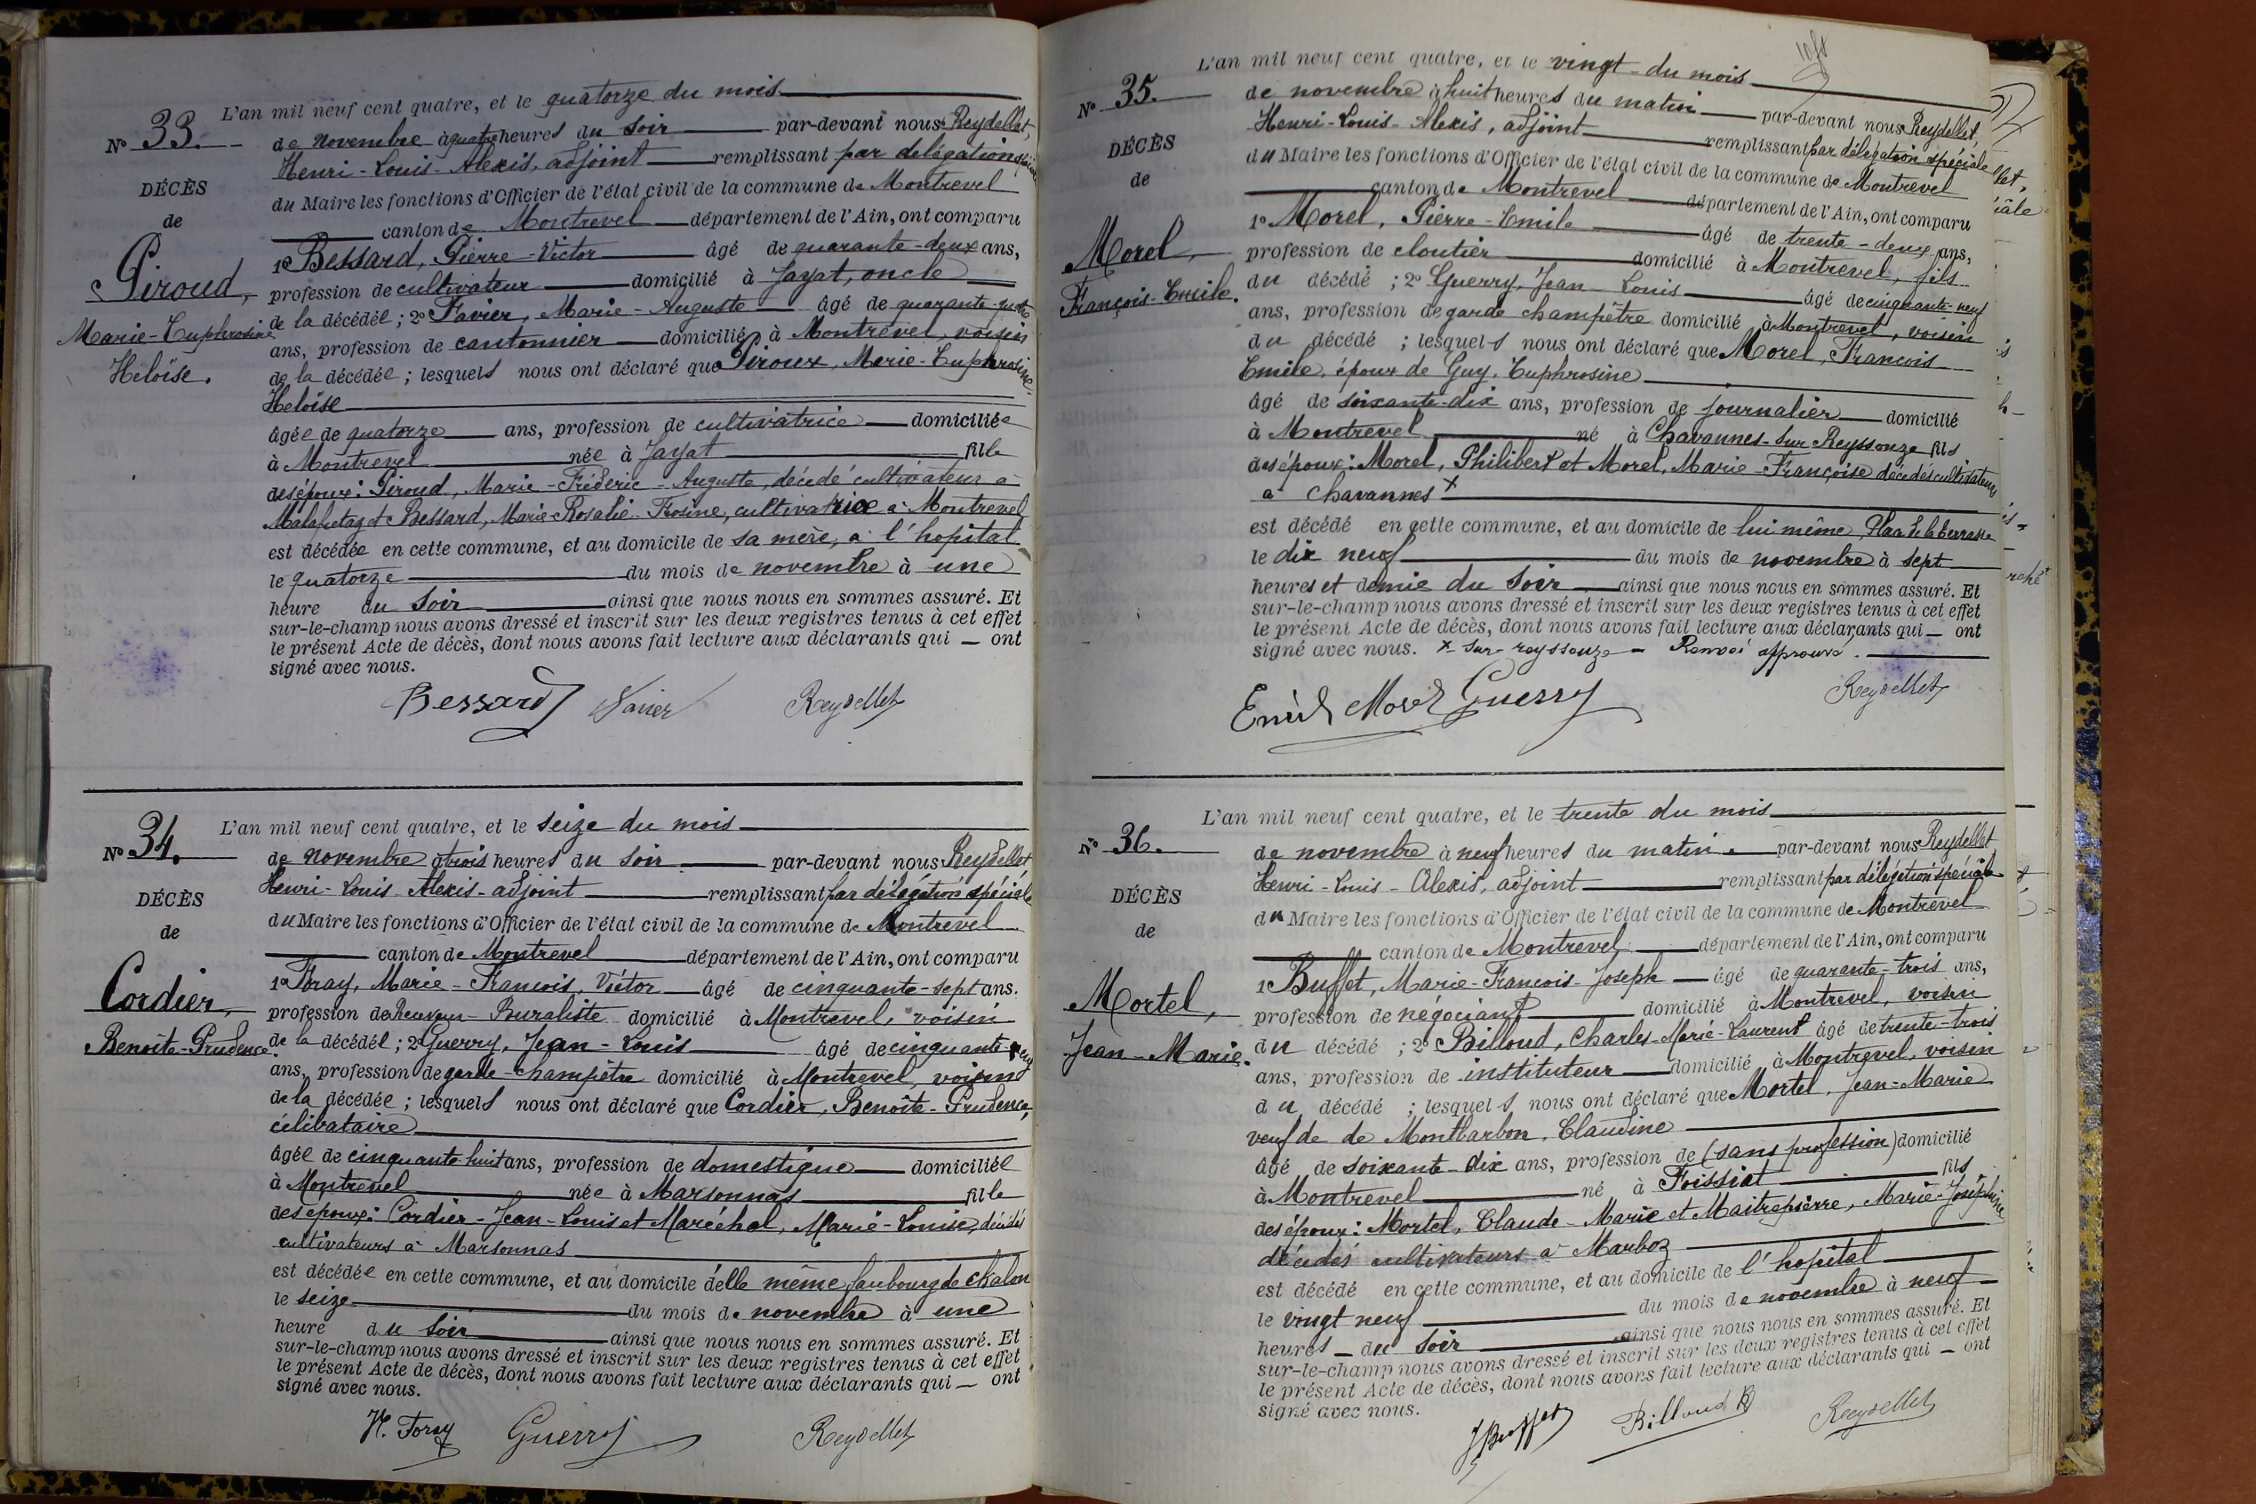 L'an mil neuf cent quatre, et le quatorze du mois
No 33.
de novembre à quatre heures du soir par-devant nous Reydellet,
Henri-Louis-Alexis, adjoint remplissant par délégation spéciale
DÉCÈS
du Maire les fonctions d'Officier de l'état civil de la commune de Montrevel
de
canton de Montrevel département de l'Ain, ont comparu
1o Bessard, Pierre-Victor âgé de quarante-deux ans,
Piroud,
profession de cultivateur domicilié à Jayat, oncle
Marie-Euphrosine
de la décédée ; 2o Favier, Marie-Auguste âgé de quarante-
ans, profession de cantonnier domicilié à Montrevel, voisin
Héloïse.
de la décédée ; lesquels nous ont déclaré que Piroux, Marie-Euphrosine-
Héloïse
âgée de quatorze ans, profession de cultivatrice domiciliée
à Montrevel née à Jayat fille
des époux : Piroud, Marie-Fréderic-Auguste, décédé cultivateur à
Malafretaz et Bessard, Marie-Rosalie-Frosine, cultivatrice à Montrevel
est décédée en cette commune, et au domicile de sa mère, à l'hopital
le quatorze du mois de novembre à une
heure du soir ainsi que nous nous en sommes assuré. Et
sur-le-champ nous avons dressé et inscrit sur les deux registres tenus à cet effet
le présent Acte de décès, dont nous avons fait lecture aux déclarants qui — ont
signé avec nous.
Bessard Favier Reydellet
L'an mil neuf cent quatre, et le seize du mois
No 34.
de novembre à trois heures du soir par-devant nous Reydellet
Henri-Louis-Alexis-adjoint remplissant par délégation spéciale
DÉCÈS
du Maire les fonctions d'Officier de l'état civil de la commune de Montrevel
de
canton de Montrevel département de l'Ain, ont comparu
1o Foray, Marie-François, Victor âgé de cinquante-sept ans.
Cordier,
profession de Receveur-Buraliste domicilié à Montrevel, voisin
Benoîte-Prudence.
de la décédée ; 2o Guerry, Jean-Louis âgé de cinquante neuf
ans, profession de garde-champêtre domicilié à Montrevel, voisin
de la décédée ; lesquels nous ont déclaré que Cordier, Benoîte-Prudence,
célibataire
âgée de cinquante huit ans, profession de domestique domiciliée
à Montrevel née à Marsonnas fille
des époux : Cordier-Jean-Louis et Maréchal, Marie-Louise, décédés
cultivateurs à Marsonnas
est décédée en cette commune, et au domicile d'elle même faubourg de Chalon
le seize du mois de novembre à une
heure du soir ainsi que nous nous en sommes assuré. Et
sur-le-champ nous avons dressé et inscrit sur les deux registres tenus à cet effet
le présent Acte de décès, dont nous avons fait lecture aux déclarants qui — ont
signé avec nous.
Foray Guerry Reydellet
L'an mil neuf cent quatre, et le vingt du mois
No 35.
de novembre à huit heures du matin par-devant nous Reydellet,
Henri-Louis-Alexis, adjoint remplissant par délégation spéciale
DÉCÈS
du Maire les fonctions d'Officier de l'état civil de la commune de Montrevel
de
canton de Montrevel département de l'Ain, ont comparu
1o Morel, Pierre-Emile âgé de trente-deux ans,
Morel,
profession de cloutier domicilié à Montrevel, fils
François-Emile.
du décédé ; 2o Guerry, Jean Louis âgé de cinquante-neuf
ans, profession de garde champêtre domicilié à Montrevel, voisin
du décédé ; lesquels nous ont déclaré que Morel, François
Emile, époux de Guy, Euphrosine
âgé de soixante-dix ans, profession de journalier domicilié
à Montrevel né à Chavannes-sur Reyssouze fils
des époux : Morel, Philibert et Morel, Marie-Françoise décédés cultivateurs
à Chavannes x
est décédé en cette commune, et au domicile de lui même, Place de la Terrasse
le dix neuf du mois de novembre à sept
heures et demie du soir ainsi que nous nous en sommes assuré. Et
sur-le-champ nous avons dressé et inscrit sur les deux registres tenus à cet effet
le présent Acte de décès, dont nous avons fait lecture aux déclarants qui — ont
signé avec nous. x sur-reyssouze - Renvoi approuvé.
Emile Morel Guerry Reydellet
L'an mil neuf cent quatre, et le trente du mois
No 36.
de novembre à neuf heures du matin par-devant nous Reydellet
Henri-Louis-Alexis, adjoint remplissant par délégation spéciale
DÉCÈS
du Maire les fonctions d'Officier de l'état civil de la commune de Montrevel
de
canton de Montrevel département de l'Ain, ont comparu
1o Buffet, Marie-François-Joseph âgé de quarante-trois ans,
Mortel,
profession de négociant domicilié à Montrevel, voisin
Jean-Marie.
du décédé ; 2o Billoud, Charles-Marie-Laurent âgé de trente-trois
ans, profession de instituteur domicilié à Montrevel, voisin
du décédé ; lesquels nous ont déclaré que Mortel, Jean-Marie
veuf de de Montbarbon, Claudine
âgé de soixante-dix ans, profession de (sans profession) domicilié
à Montrevel né à Foissiat fils
des époux : Mortel, Claude-Marie et Maitrepierre, Marie-Joséphine
décédés cultivateurs à Marboz
est décédé en cette commune, et au domicile de l'hopital
le vingt neuf du mois de novembre à neuf
heures du soir ainsi que nous nous en sommes assuré. Et
sur-le-champ nous avons dressé et inscrit sur les deux registres tenus à cet effet
le présent Acte de décès, dont nous avons fait lecture aux déclarants qui — ont
signé avec nous.
JBuffet Billoud Reydellet